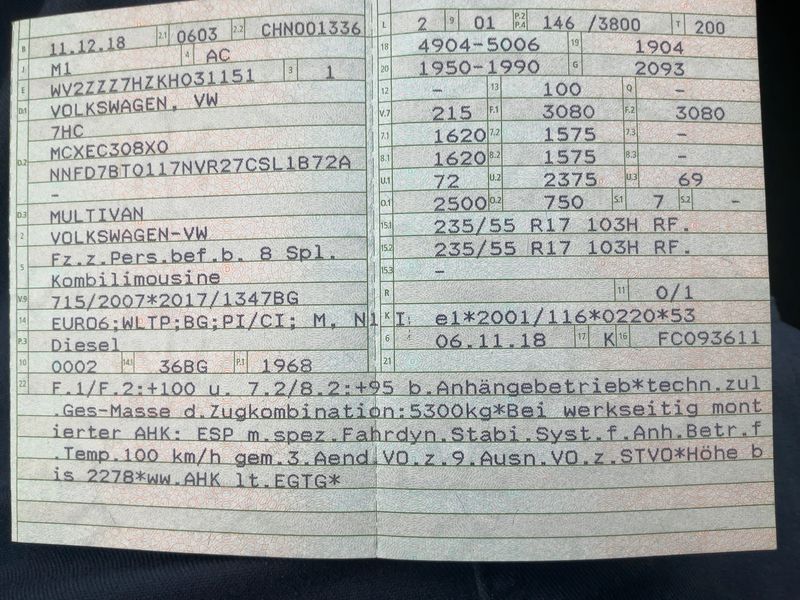 B 11.12.18 2.1 0603 2.2 CHN001336
J M1 4 AC
E WV2ZZZ7HZKH031151 3 1
D.1 VOLKSWAGEN, VW
7HC
D.2 MCXEC308X0
NNFD7BTQ117NVR27CSL1B72A
-
D.3 MULTIVAN
2 VOLKSWAGEN-VW
5 Fz.z.Pers.bef.b. 8 Spl.
Kombilimousine
V.9 715/2007*2017/1347BG
14 EURO6;WLTP;BG;PI/CI; M, N1 I;
P.3 Diesel
10 0002 14.1 36BG P.1 1968
L 2 9 01 P.2 P.4 146 /3800 T 200
18 4904-5006 19 1904
20 1950-1990 G 2093
12 - 13 100 Q -
V.7 215 F.1 3080 F.2 3080
7.1 1620 7.2 1575 7.3 -
8.1 1620 8.2 1575 8.3 -
U.1 72 U.2 2375 U.3 69
O.1 2500 O.2 750 S.1 7 S.2 -
15.1 235/55 R17 103H RF.
15.2 235/55 R17 103H RF.
15.3 -
R 11 0/1
K e1*2001/116*0220*53
6 06.11.18 17 K 16 FC093611
21
22 F.1/F.2:+100 u. 7.2/8.2:+95 b.Anhängebetrieb*techn.zul
.Ges-Masse d.Zugkombination:5300kg*Bei werkseitig mont
ierter AHK: ESP m.spez.Fahrdyn.Stabi.Syst.f.Anh.Betr.f
.Temp.100 km/h gem.3.Aend.VO.z.9.Ausn.VO.z.STVO*Höhe b
is 2278*ww.AHK lt.EGTG*